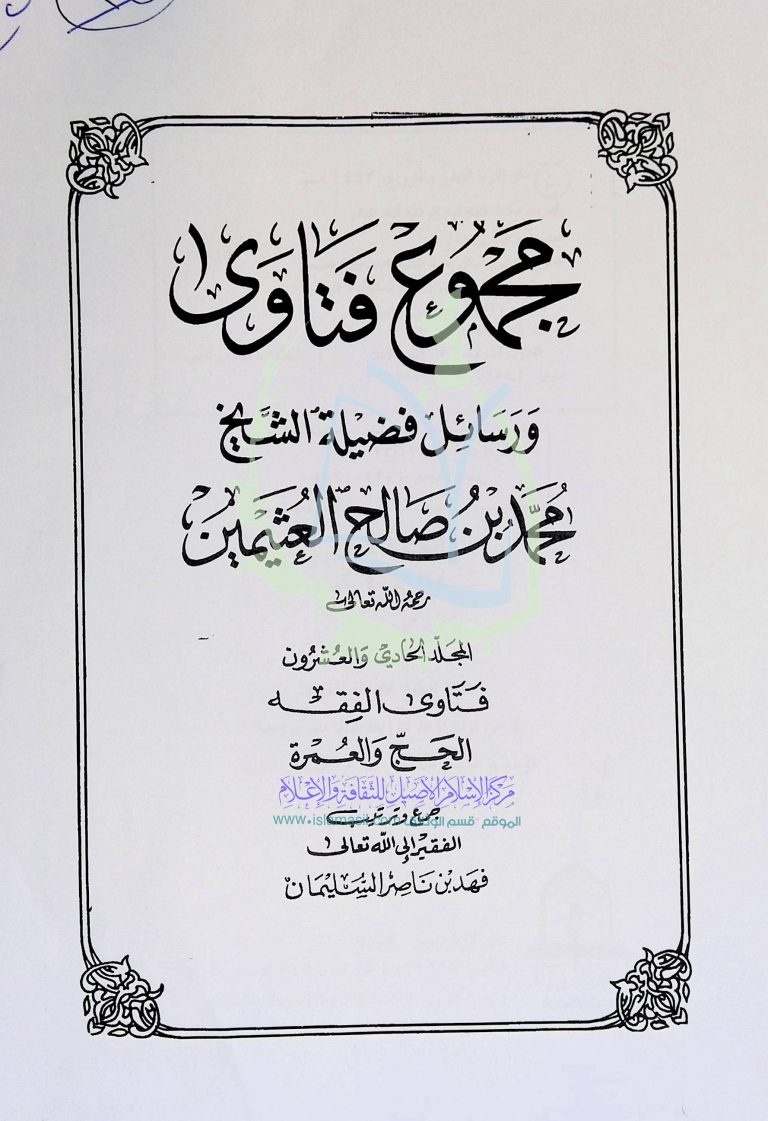 مجموع فتاوى
ورسائل فضيلة الشيخ
محمد بن صالح العثيمين
رحمه الله تعالى
المجلد الحادي والعشرون
فتاوى الفقه
الحج والعمرة
مركز الإسلام الأصيل للثقافة والإعلام
جمع وترتيب
الموقع - قسم الوثائق www.islamasil.com
الفقير إلى الله تعالى
فهد بن ناصر السليمان